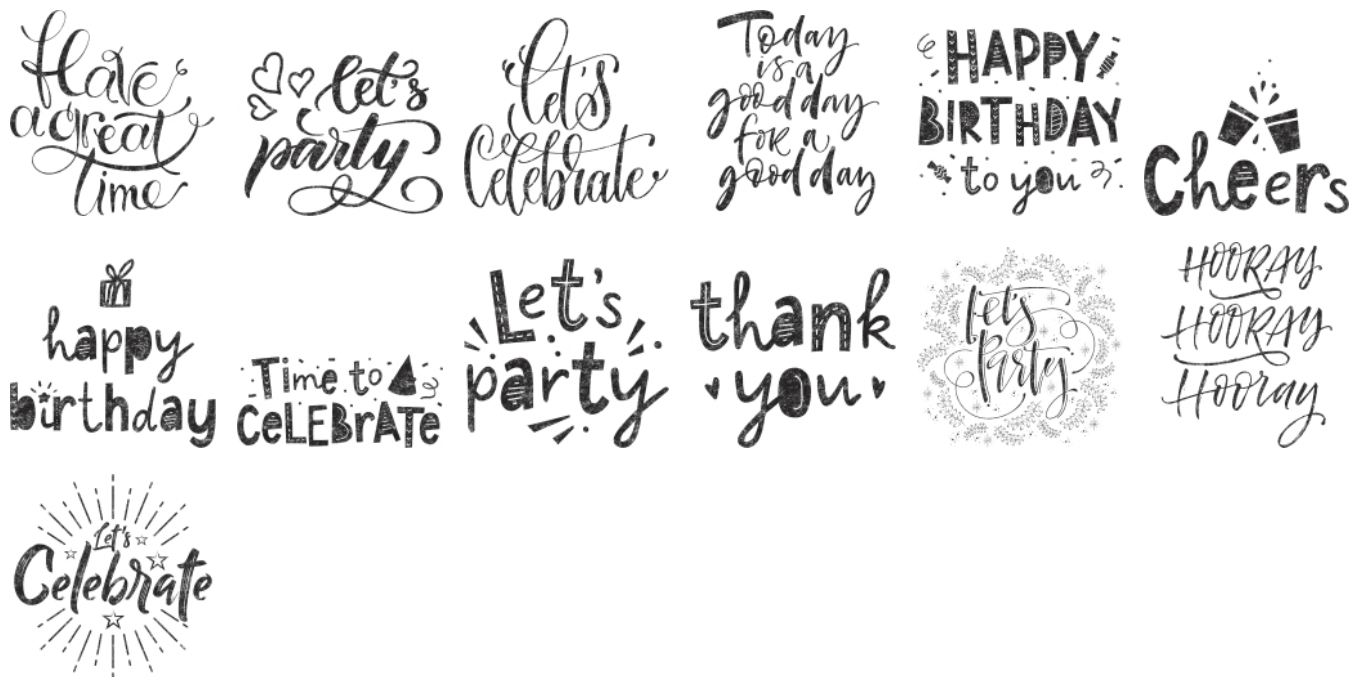 Have
a great
time
let's
party
let's
Celebrate
Today
is a
good day
for a
good day
HAPPY
BIRTHDAY
to you
Cheers
happy
birthday
Time to
CeLEBrATe
Let's
party
thank
you
Let's
Party
HOORAY
HOORAY
Hooray
Let's
Celebrate